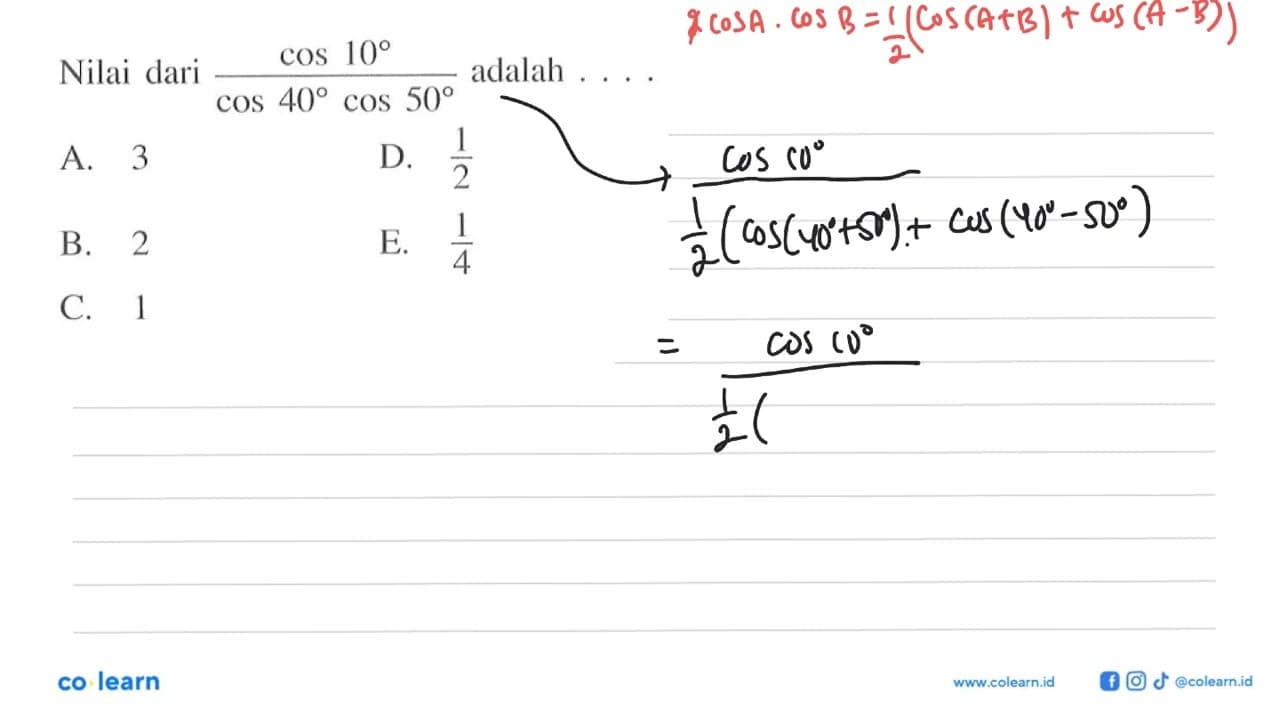 cos A . cos B = 1/2 (cos (A+B) + cos (A - B))
Nilai dari cos 10° / cos 40° cos 50° adalah . . . .
A. 3
B. 2
C. 1
D. 1/2
E. 1/4
cos 10° / 1/2 (cos(40°+50°) + cos (40° - 50°)
= cos 10° / 1/2 (
co learn
www.colearn.id
@colearn.id